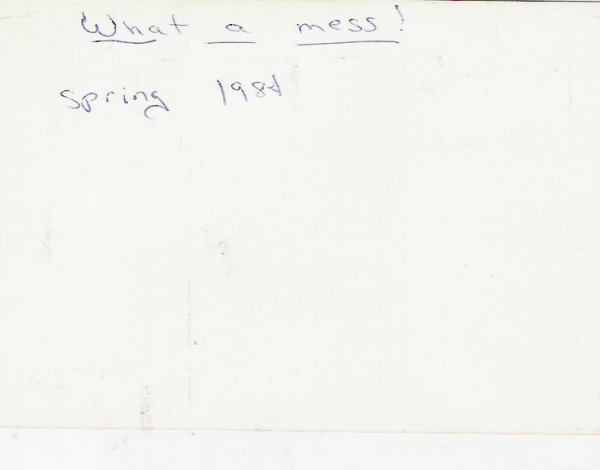 What a mess!
Spring 1984